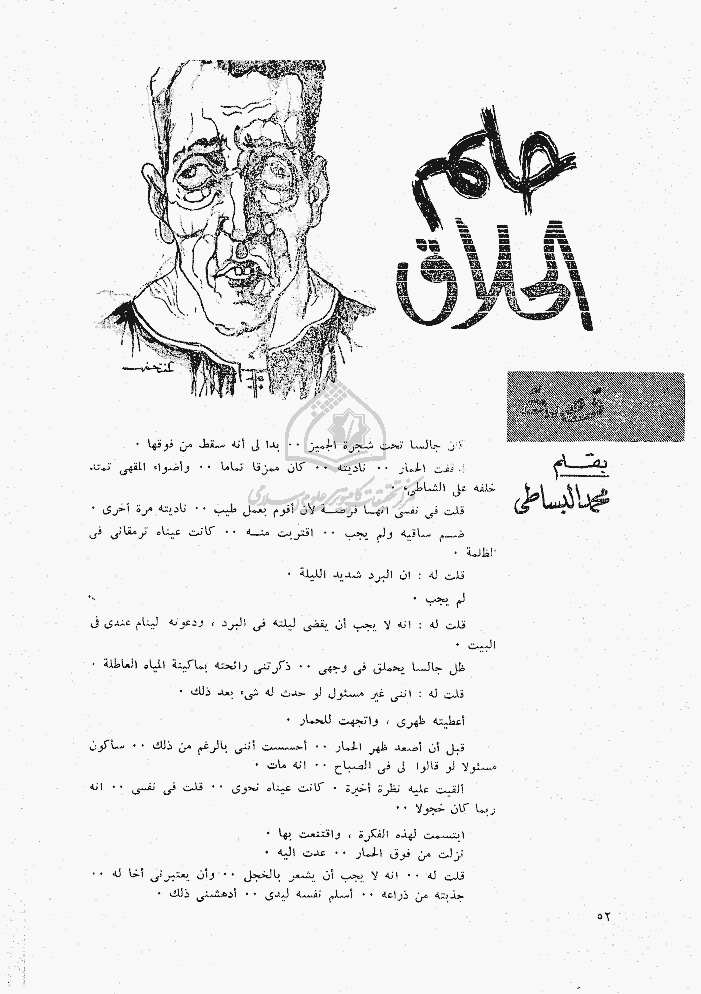 حلم
الحلاق
قصة
بقلم
محمد البساطى
كان جالسا تحت شجرة الجميز ·· بدا لى أنه سقط من فوقها ·
أوقفت الحمار ·· ناديته ·· كان ممزقا تماما ·· وأضواء المقهى تمتد
خلفه على الشاطىء ·
قلت فى نفسى انها فرصة لأن أقوم بعمل طيب ·· ناديته مرة أخرى ·
ضم ساقيه ولم يجب ·· اقتربت منه ·· كانت عيناه ترمقانى فى
الظلمة ·
قلت له : ان البرد شديد الليلة ·
لم يجب ·
قلت له : انه لا يجب أن يقضى ليلته فى البرد ، ودعوته لينام عندى فى
البيت ·
ظل جالسا يحملق فى وجهى ·· ذكرتنى رائحته بماكينة المياه العاطلة ·
قلت له : اننى غير مسئول لو حدث له شىء بعد ذلك ·
أعطيته ظهرى ، واتجهت للحمار ·
قبل أن أصعد ظهر الحمار ·· أحسست أننى بالرغم من ذلك ·· سأكون
مسئولا لو قالوا لى فى الصباح ·· انه مات ·
ألقيت عليه نظرة أخيرة · كانت عيناه نحوى ·· قلت فى نفسى ·· انه
ربما كان خجولا ··
ابتسمت لهذه الفكرة ، واقتنعت بها ·
نزلت من فوق الحمار ·· عدت اليه ·
قلت له ·· انه لا يجب أن يشعر بالخجل ·· وأن يعتبرنى أخا له ··
جذبته من ذراعه ·· أسلم نفسه ليدى ·· أدهشنى ذلك ·
٥٢